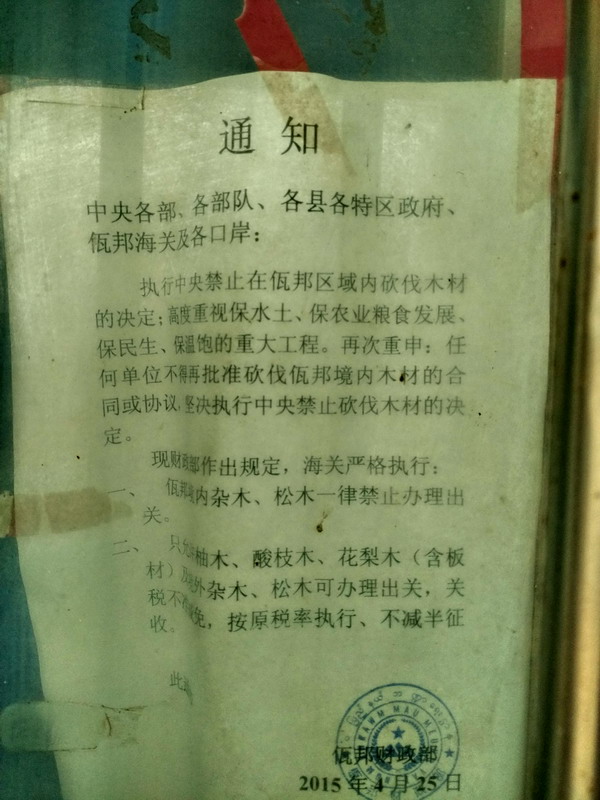 通知
中央各部、各部队、各县各特区政府、
佤邦海关及各口岸：
执行中央禁止在佤邦区域内砍伐木材
的决定；高度重视保水土、保农业粮食发展、
保民生、保温饱的重大工程。再次重申：任
何单位不得再批准砍伐佤邦境内木材的合
同或协议，坚决执行中央禁止砍伐木材的决
定。
现财政部作出规定，海关严格执行：
一、佤邦境内杂木、松木一律禁止办理出
关。
二、只允许柚木、酸枝木、花梨木（含板
材）及境外杂木、松木可办理出关，关
税不得减免，按原税率执行、不减半征
收。
佤邦财政部
2015年4月25日